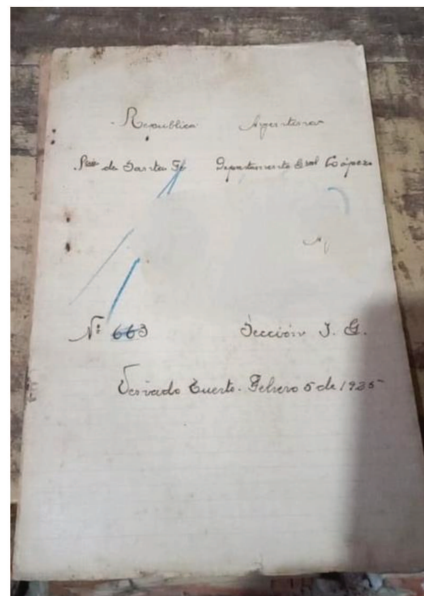 Republica Argentina
Pcia de Santa Fé Departamento Gral López
Nº 663 Sección J. G.
Venado Tuerto. Febrero 5 de 1925